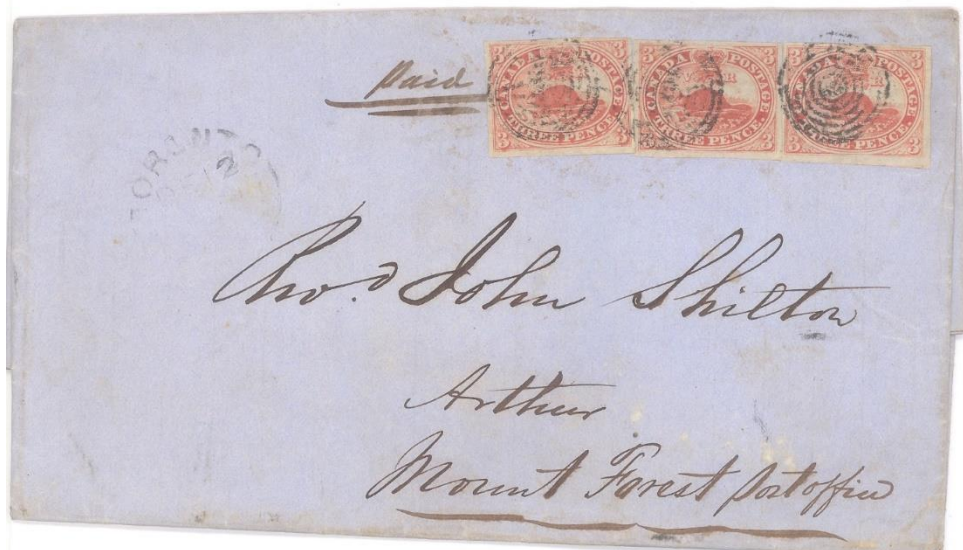 Paid
3 CANADA POSTAGE 3
3 THREE PENCE 3
3 CANADA POSTAGE 3
3 THREE PENCE 3
3 CANADA POSTAGE 3
3 THREE PENCE 3
TORONTO
12
Revd John Shilton
Arthur
Mount Forest post office